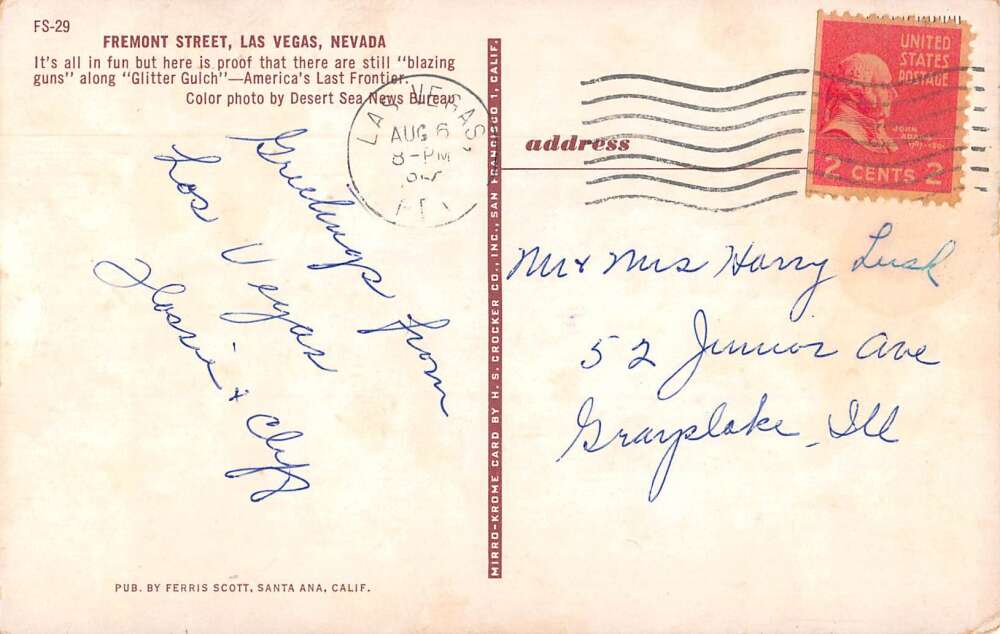 FS-29
FREMONT STREET, LAS VEGAS, NEVADA
It's all in fun but here is proof that there are still "blazing
guns" along "Glitter Gulch"—America's Last Frontier.
Color photo by Desert Sea News Bureau
LAS VEGAS,
AUG 6
8-PM
Greetings from
Las Vegas
Flossie & Cliff
PUB. BY FERRIS SCOTT, SANTA ANA, CALIF.
MIRRO-KROME CARD BY H. S. CROCKER CO., INC., SAN FRANCISCO 1, CALIF.
address
UNITED
STATES
POSTAGE
JOHN
ADAMS
2 CENTS 2
Mr & Mrs Harry Lusk
52 Junior Ave
Grayslake, Ill